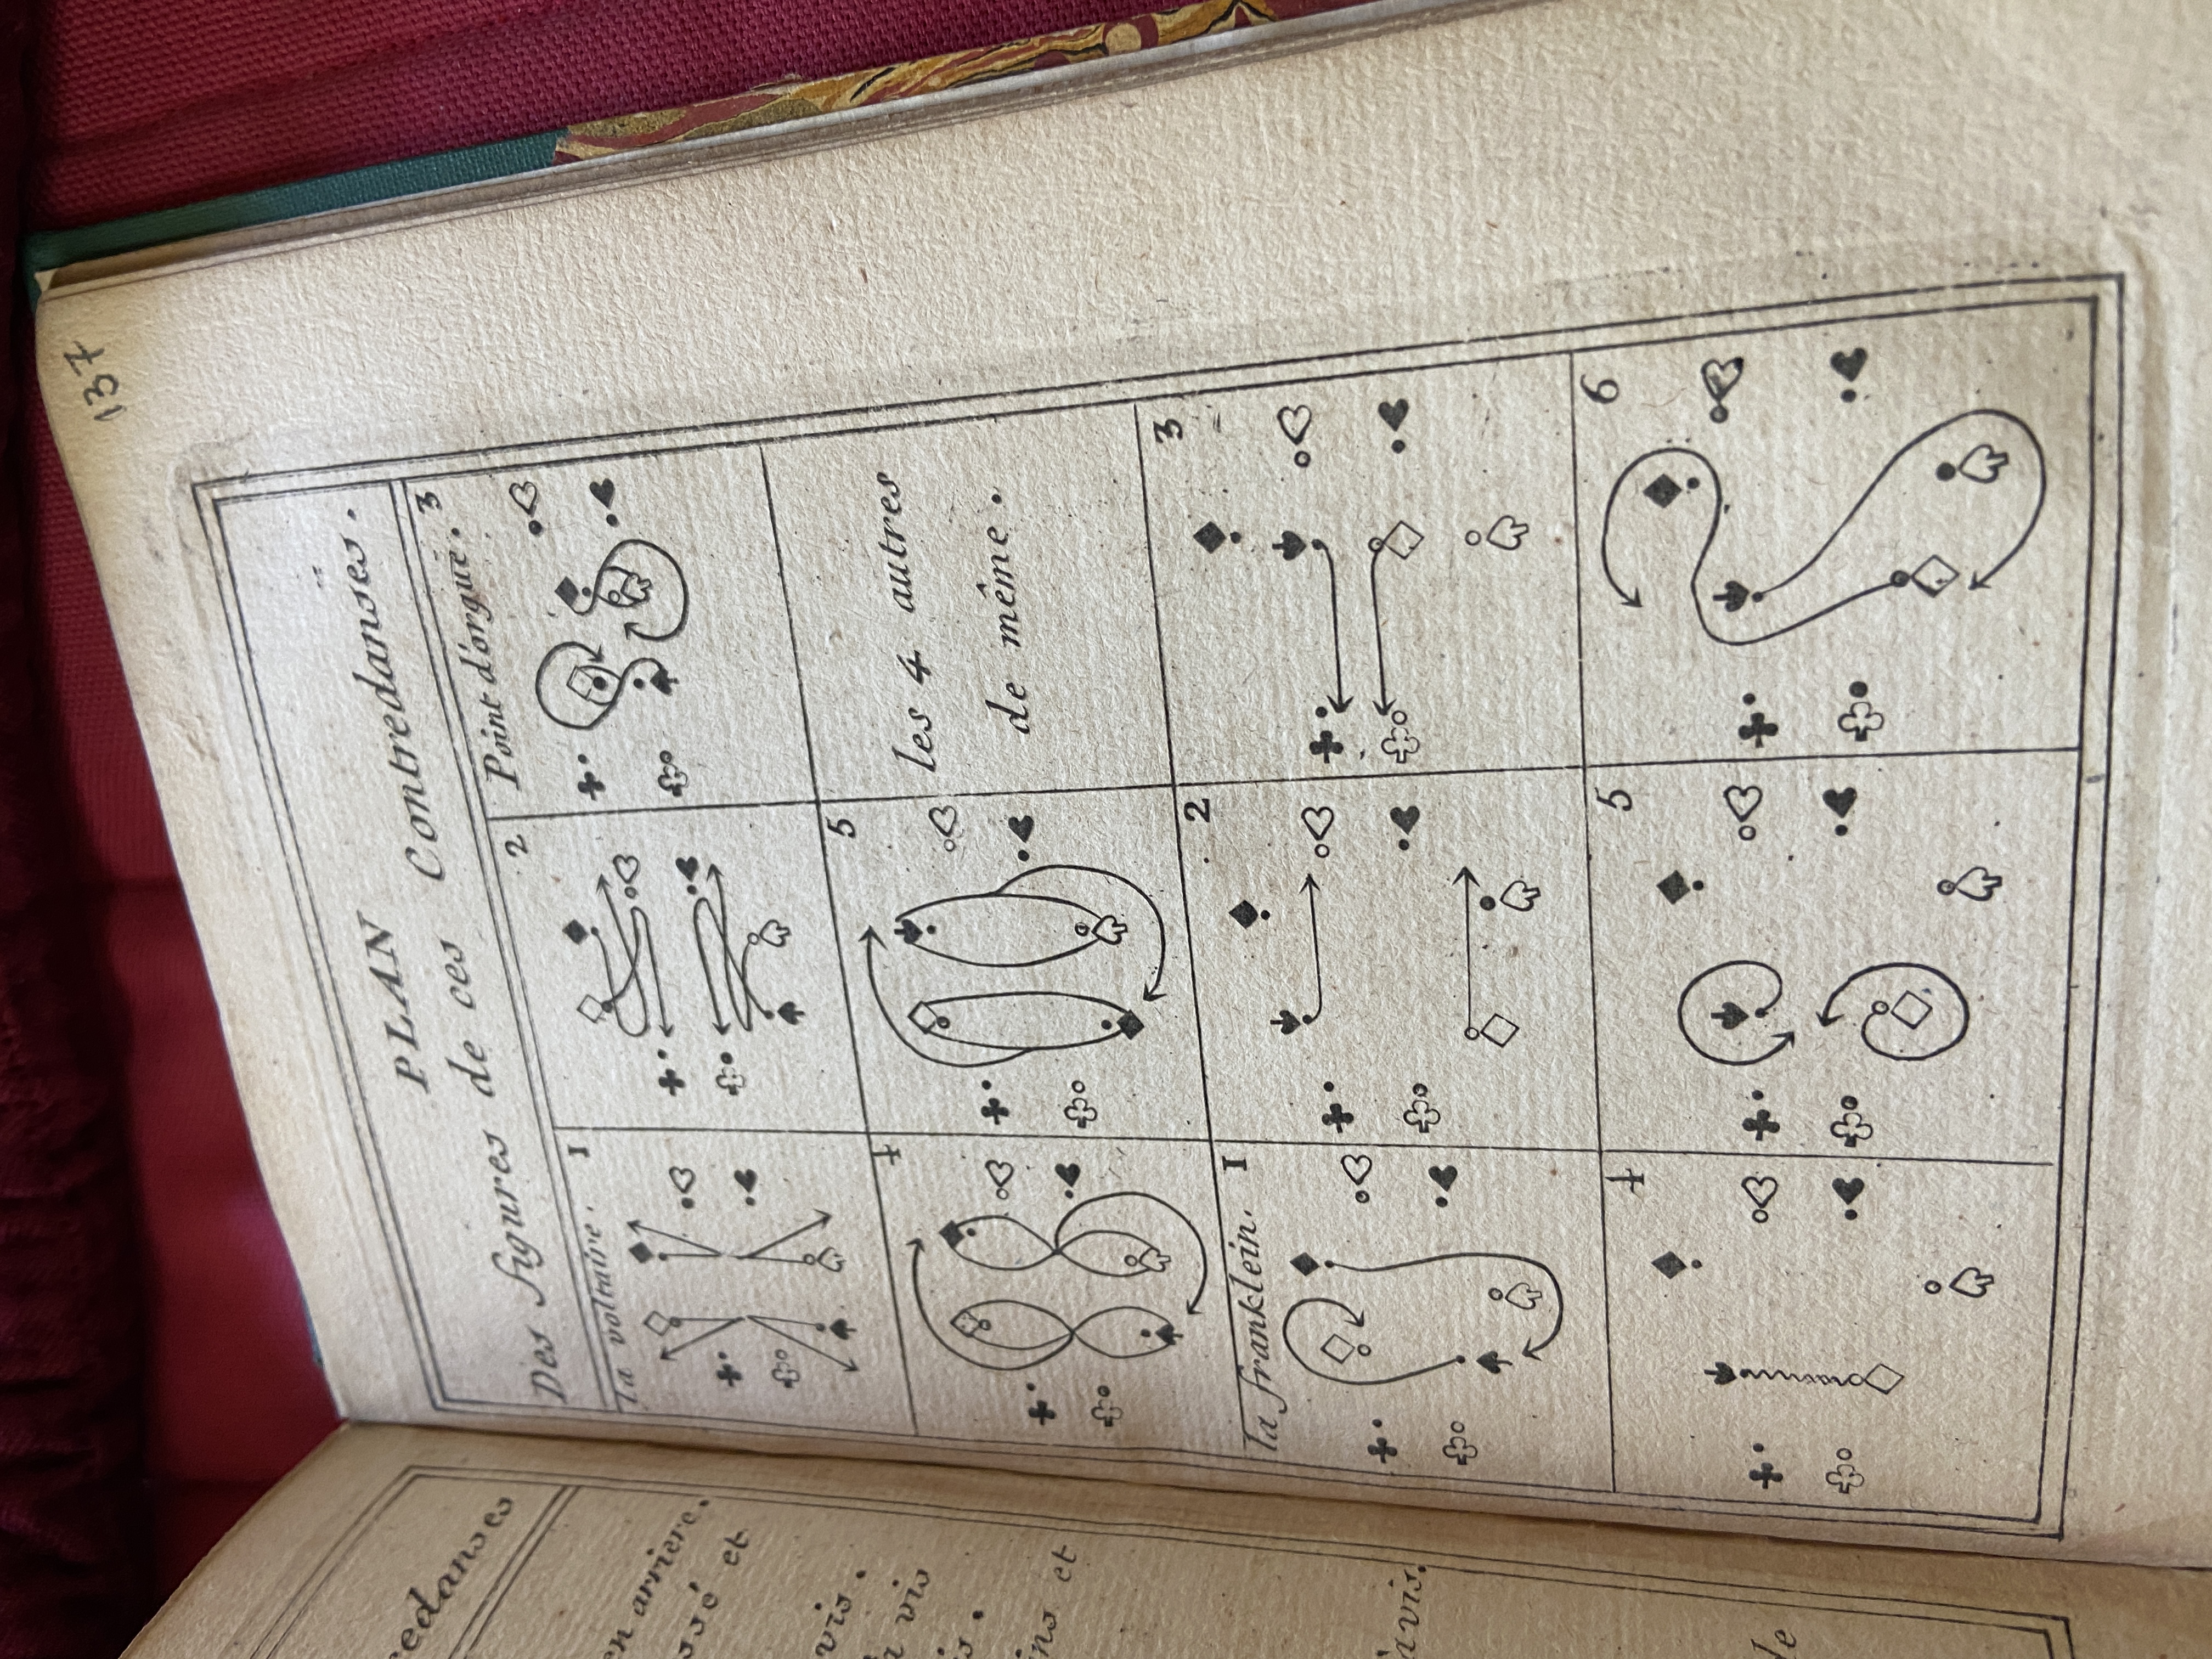 137
PLAN
Des figures de ces Contredanses.
La voltraire. 1
2
Point d'orgue. 3
4
5
les 4 autres
de même.
La franklein. 1
2
3
4
5
6
en arriere.
et
vis.
vis
et